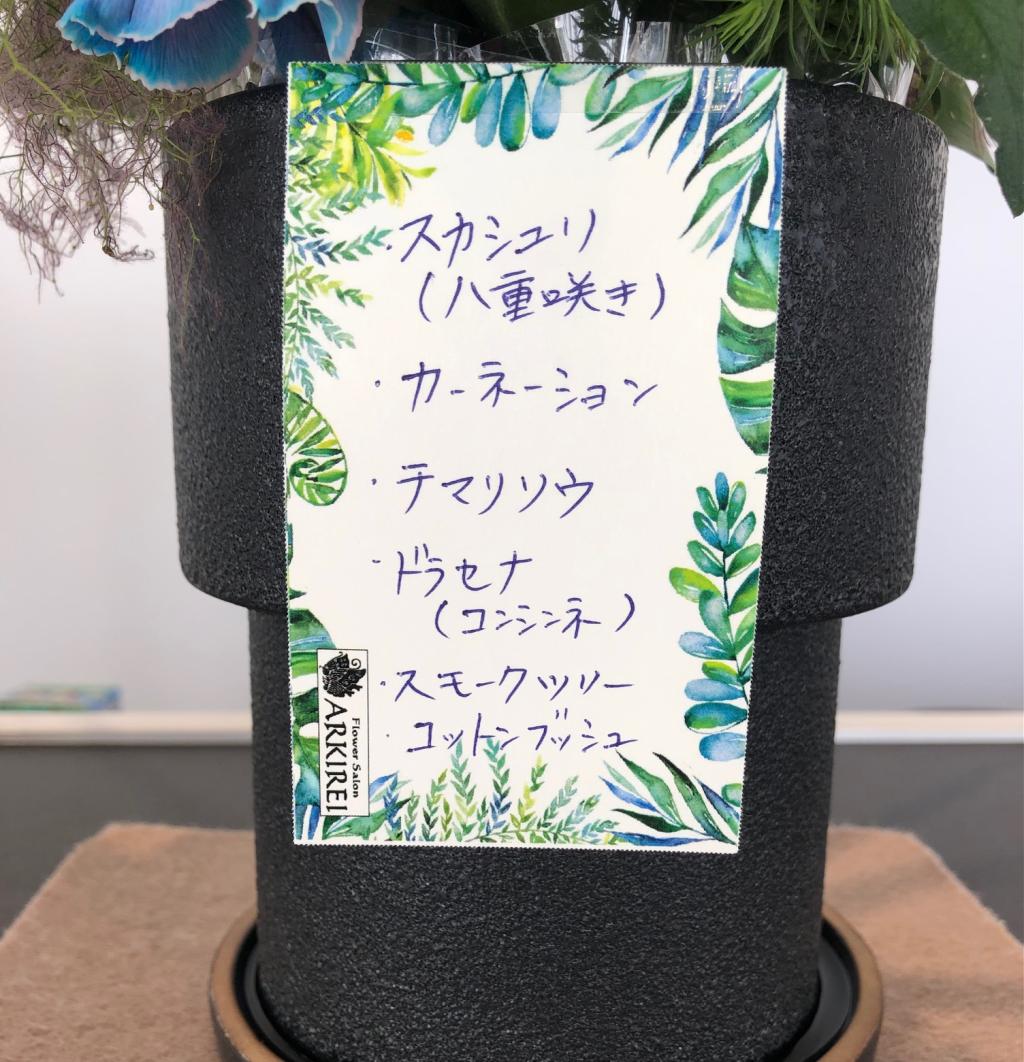 ・スカシユリ
(八重咲き)
・カーネーション
・テマリソウ
・ドラセナ
(コンシンネ)
・スモークツリー
・コットンブッシュ
Flower Salon
ARKIREI